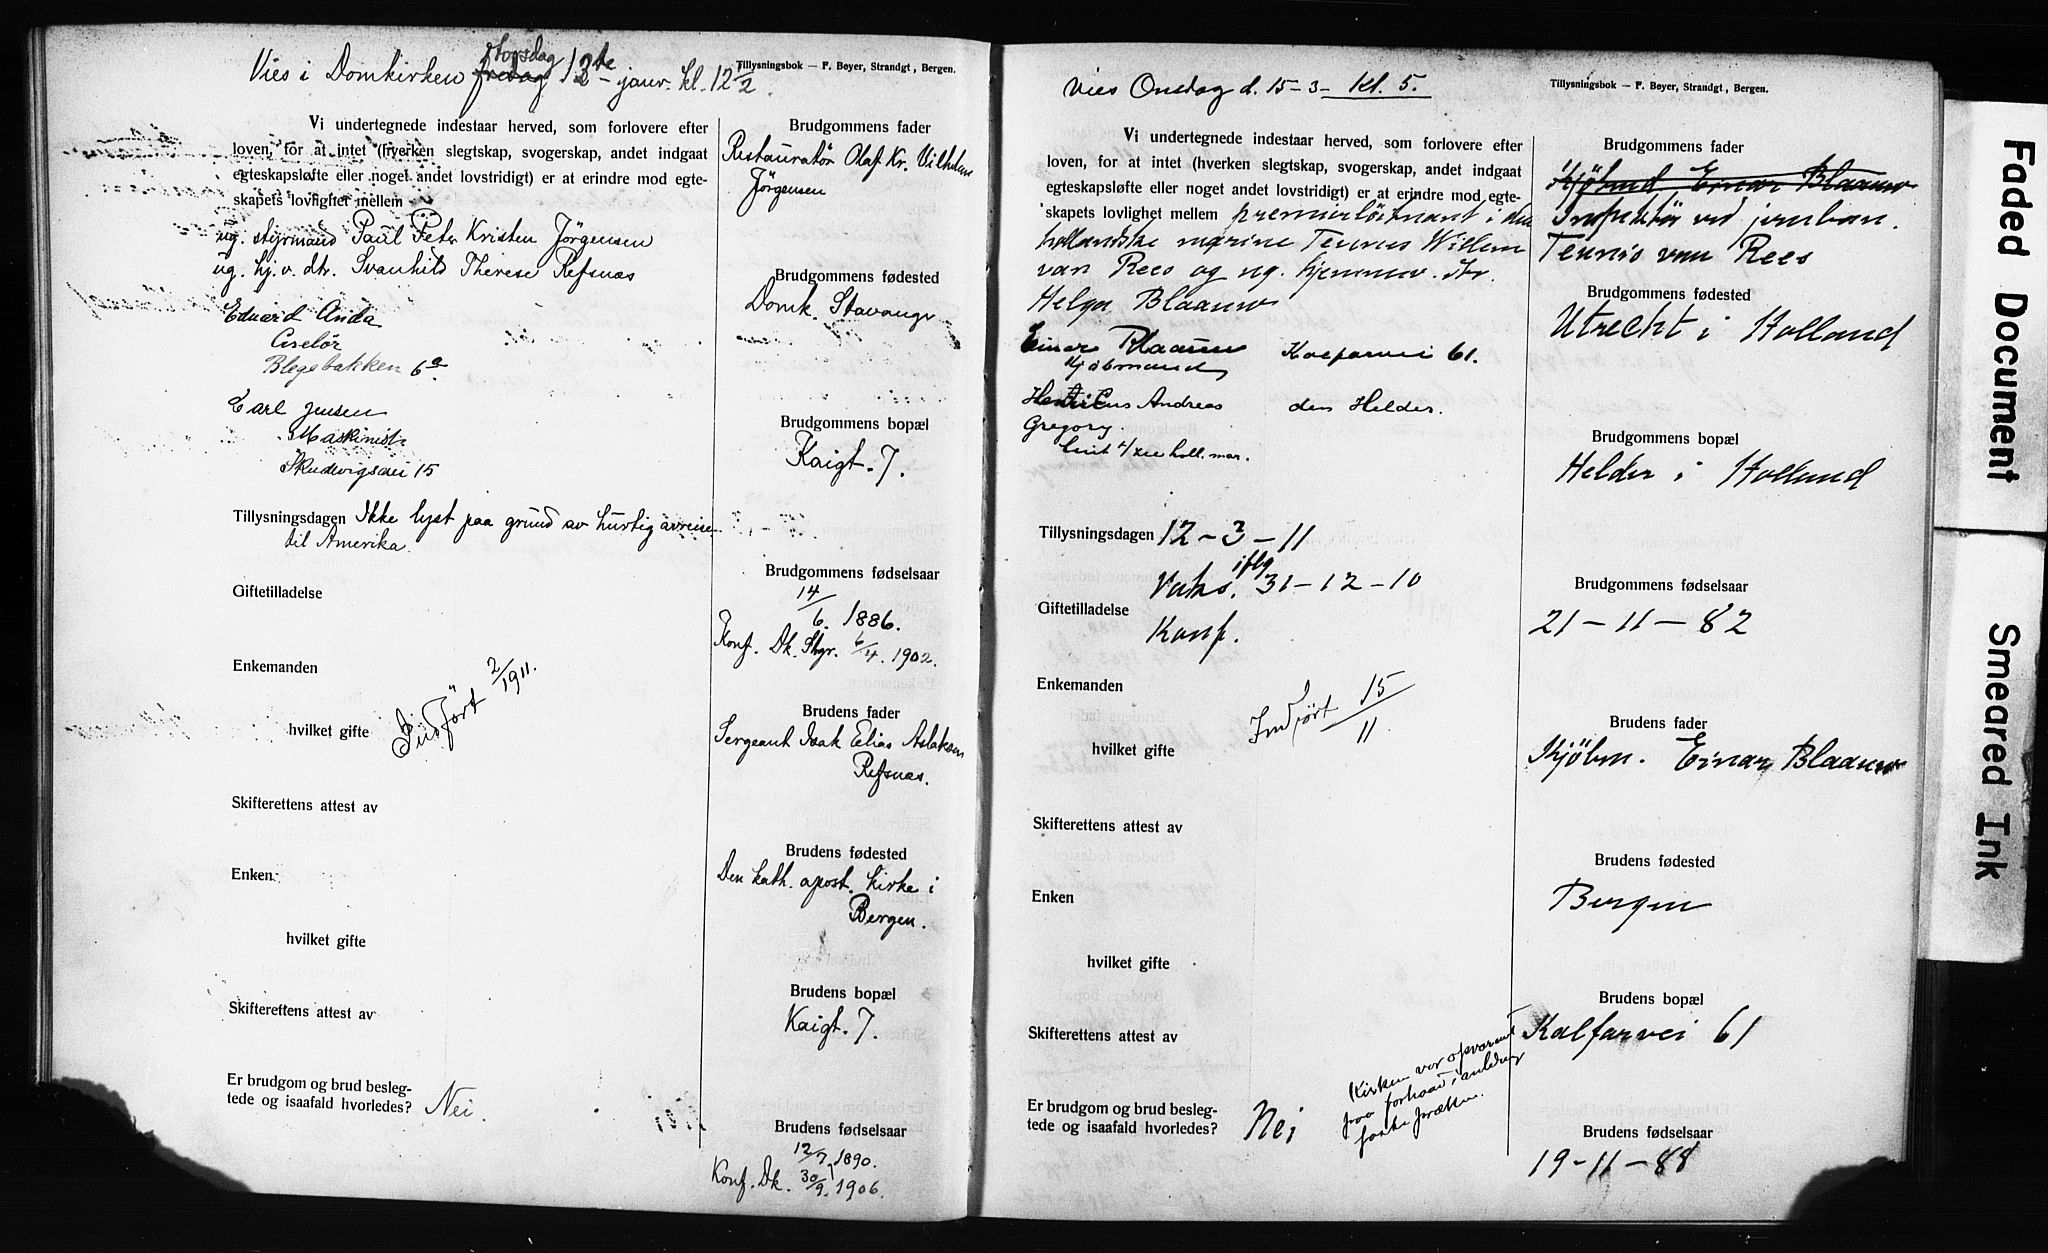 Vies i Domkirken fredag torsdag 12te janv. kl. 12 1/2
Tillysningsbok — F. Beyer, Strandgt, Bergen.
Vi undertegnede indestaar herved, som forlovere efter
loven, for at intet (hverken slegtskap, svogerskap, andet indgaat
egteskapsløfte eller noget andet lovstridigt) er at erindre mod egte-
skapets lovlighet mellem
ug. styrmand Paul Peter Kristen Jørgensen
ug. hj. v. dtr. Svanhild Therese Refsnæs
Edvard Anda
Ciselør
Blegebakken 6a
Carl Jensen
Maskinist
Skudevigsvei 15
Tillysningsdagen Ikke lyst paa grund av hurtig avreise
til Amerika.
Giftetilladelse
Enkemanden
hvilket gifte
Indført 2/1911.
Skifterettens attest av
Enken
hvilket gifte
Skifterettens attest av
Er brudgom og brud besleg-
tede og isaafald hvorledes? Nei.
Brudgommens fader
Restauratør Olaf Kr. Vilhelm
Jørgensen
Brudgommens fødested
Domk. Stavanger
Brudgommens bopæl
Kaigt. 7.
Brudgommens fødselsaar
14/6. 1886.
Konf. Dk. Stgr. 6/4. 1902.
Brudens fader
Sergeant Isak Elias Aslaksen
Refsnæs.
Brudens fødested
Den kath. apost. kirke i
Bergen.
Brudens bopæl
Kaigt. 7.
Brudens fødselsaar
12/7 1890.
Konf. Dk. 30/9. 1906.
Vies Onsdag d. 15-3- kl. 5.
Tillysningsbok — F. Beyer, Strandgt, Bergen.
Vi undertegnede indestaar herved, som forlovere efter
loven, for at intet (hverken slegtskap, svogerskap, andet indgaat
egteskapsløfte eller noget andet lovstridigt) er at erindre mod egte-
skapets lovlighet mellem premierløitnant i den
hollandske marine Teunus Willem
van Rees og ug. hjemmev. dtr.
Helga Blaauw
Einar Blaauw Kalfarvei 61.
Kjøbmand
Henricus Andreas den Helder.
Gregory
Tillysningsdagen 12 - 3 - 11
iflg
Vaks. 31-12-10
Giftetilladelse
Konf.
Enkemanden
hvilket gifte
Indført 15/11.
Skifterettens attest av
Enken
hvilket gifte
Skifterettens attest av
Kirken var opvarmet
paa forhaand i anledning
Er brudgom og brud besleg-
tede og isaafald hvorledes? Nei
Brudgommens fader
Kjøbmd Einar Blaauw
Inspektør ved jernban.
Teunis van Rees
Brudgommens fødested
Utrecht i Holland
Brudgommens bopæl
Helder i Holland
Brudgommens fødselsaar
21-11-82
Brudens fader
Kjøbm. Einar Blaauw
Brudens fødested
Bergen
Brudens bopæl
Kalfarvei 61
Brudens fødselsaar
19-11-88
Faded Document
Smeared Ink